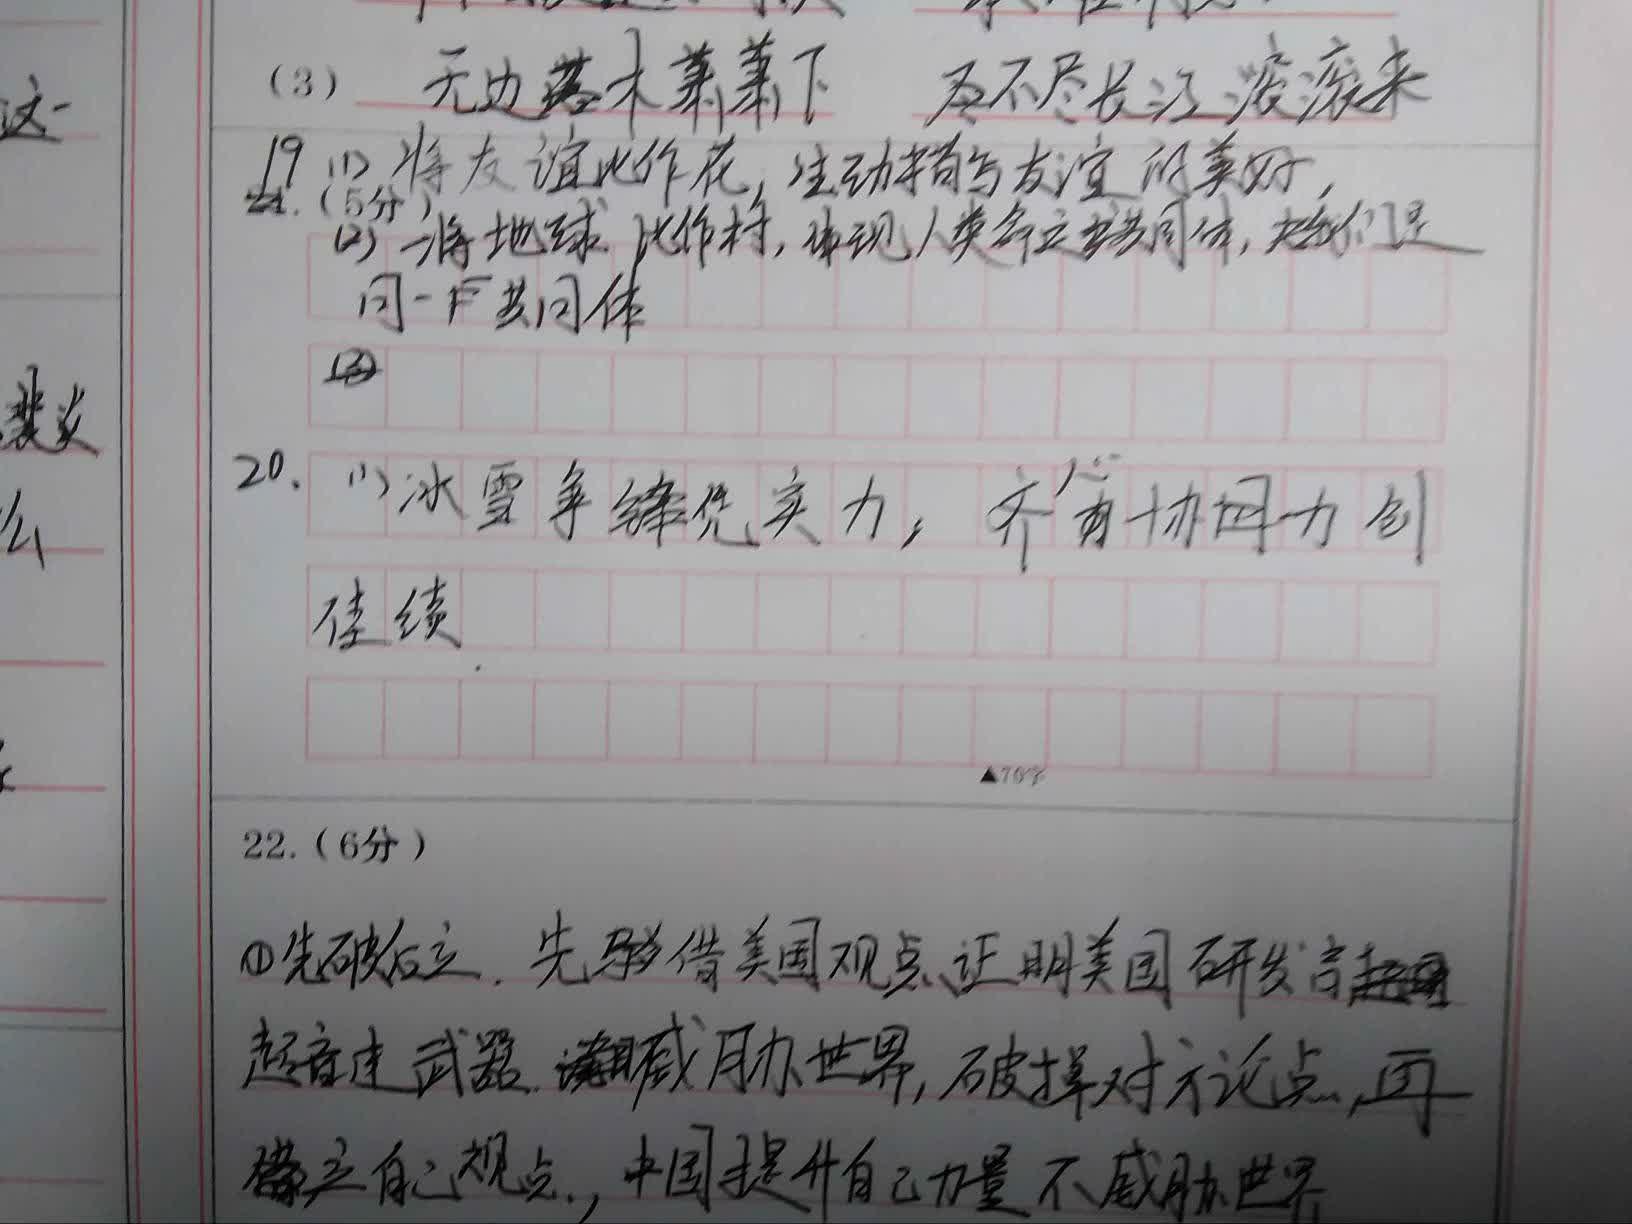 (3) 无边落木萧萧下 不尽长江滚滚来
这
19 (1) 将友谊比作花,生动描写友谊的美好,
21.(5分)
(2) 将地球比作村,体现人类命运共同体,我们是
同一个共同体
(3)
20. (1) 冰雪争锋凭实力,齐心协力创
佳续
▲70字
么
22.(6分)
①先破后立.先借美国观点证明美国研发高
超音速武器威胁世界,破掉对方论点,再
确立自己观点,中国提升自己力量不威胁世界